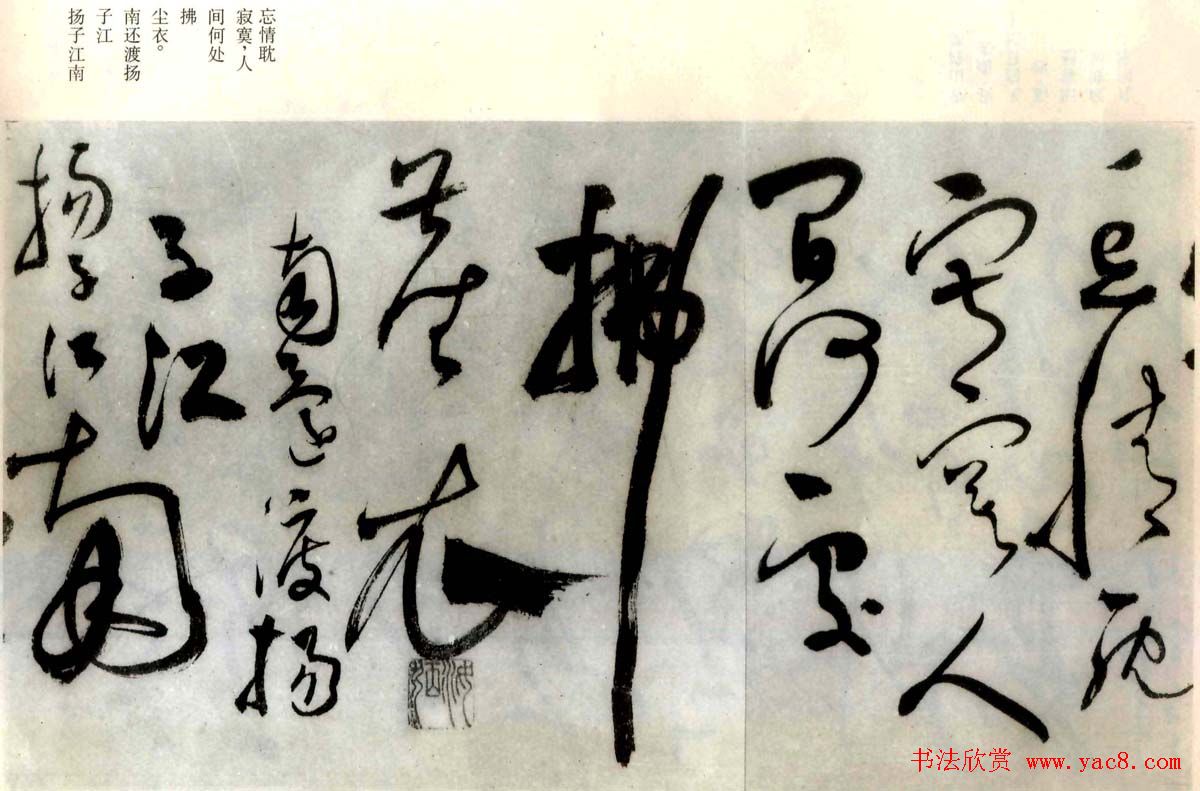 忘情耽
寂寞,人
间何处
拂
尘衣。
南还渡扬
子江
扬子江南
忘情耽
寂寞人
间何处
拂
尘衣
南还渡扬
子江
扬子江南
书法欣赏 www.yac8.com